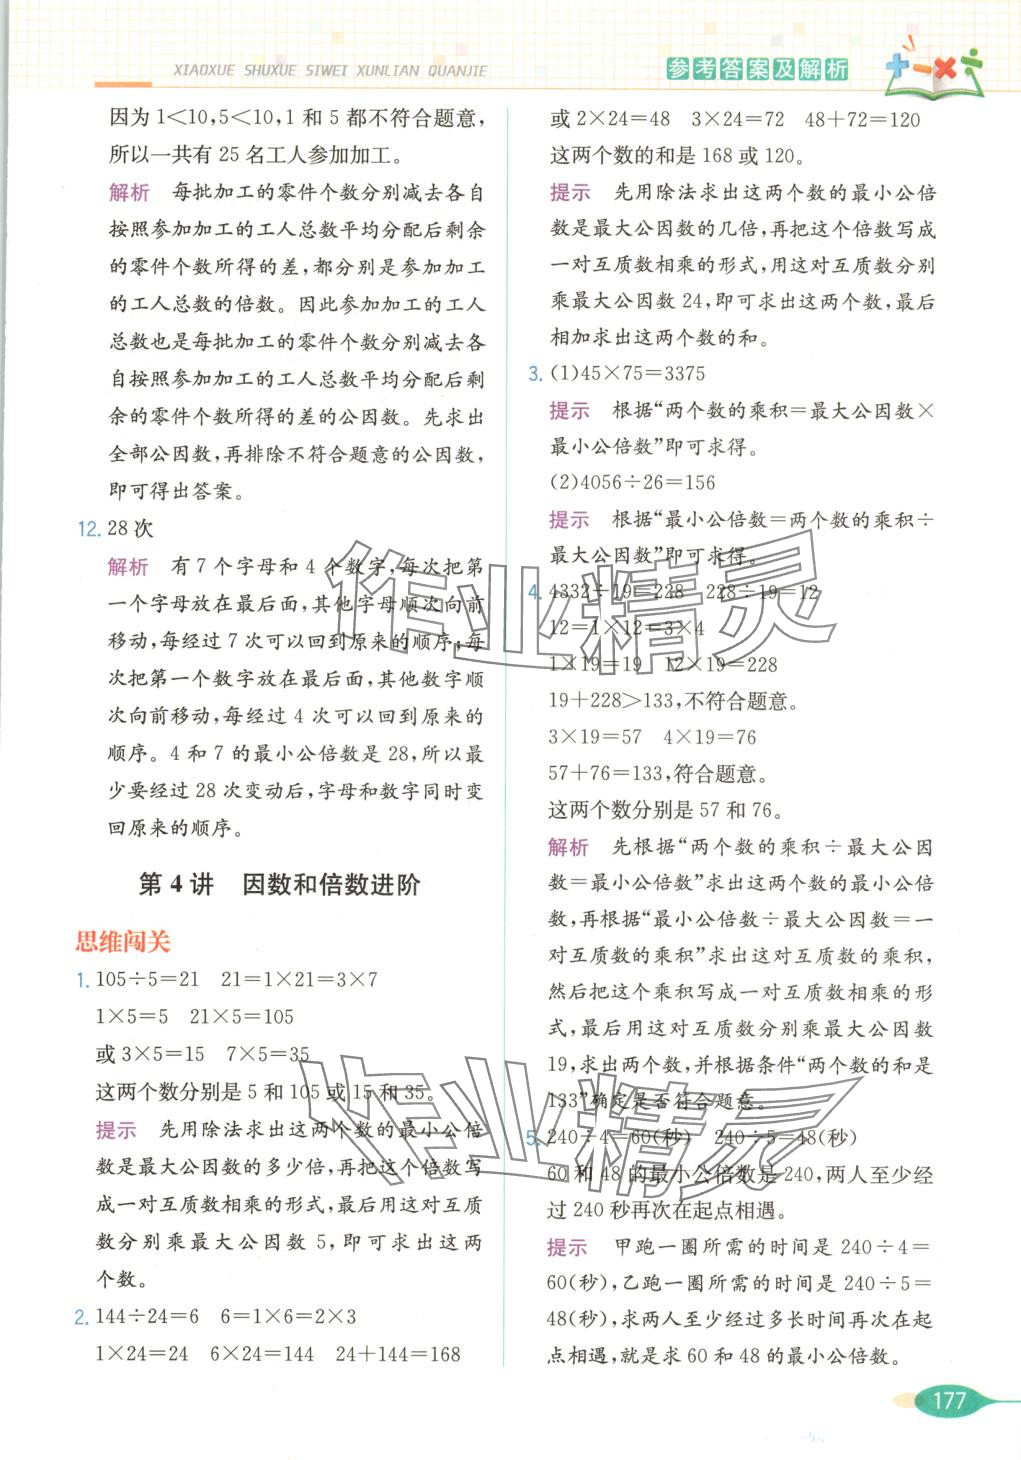 XIAOXUE SHUXUE SIWEI XUNLIAN QUANJIE
参考答案及解析
因为 1＜10,5＜10,1 和 5 都不符合题意，
所以一共有 25 名工人参加加工。
解析 每批加工的零件个数分别减去各自
按照参加加工的工人总数平均分配后剩余
的零件个数所得的差,都分别是参加加工
的工人总数的倍数。因此参加加工的工人
总数也是每批加工的零件个数分别减去各
自按照参加加工的工人总数平均分配后剩
余的零件个数所得的差的公因数。先求出
全部公因数,再排除不符合题意的公因数,
即可得出答案。
12. 28 次
解析 有 7 个字母和 4 个数字,每次把第
一个字母放在最后面,其他字母顺次向前
移动,每经过 7 次可以回到原来的顺序;每
次把第一个数字放在最后面,其他数字顺
次向前移动,每经过 4 次可以回到原来的
顺序。4 和 7 的最小公倍数是 28,所以最
少要经过 28 次变动后,字母和数字同时变
回原来的顺序。
第 4 讲 因数和倍数进阶
思维闯关
1. 105÷5=21 21=1×21=3×7
1×5=5 21×5=105
或 3×5=15 7×5=35
这两个数分别是 5 和 105 或 15 和 35。
提示 先用除法求出这两个数的最小公倍
数是最大公因数的多少倍,再把这个倍数写
成一对互质数相乘的形式,最后用这对互质
数分别乘最大公因数 5,即可求出这两
个数。
2. 144÷24=6 6=1×6=2×3
1×24=24 6×24=144 24+144=168
或 2×24=48 3×24=72 48+72=120
这两个数的和是 168 或 120。
提示 先用除法求出这两个数的最小公倍
数是最大公因数的几倍,再把这个倍数写成
一对互质数相乘的形式,用这对互质数分别
乘最大公因数 24,即可求出这两个数,最后
相加求出这两个数的和。
3. (1)45×75=3375
提示 根据“两个数的乘积=最大公因数×
最小公倍数”即可求得。
(2)4056÷26=156
提示 根据“最小公倍数=两个数的乘积÷
最大公因数”即可求得。
4. 4332÷19=228 228÷19=12
12=1×12=3×4
1×19=19 12×19=228
19+228＞133,不符合题意。
3×19=57 4×19=76
57+76=133,符合题意。
这两个数分别是 57 和 76。
解析 先根据“两个数的乘积÷最大公因
数=最小公倍数”求出这两个数的最小公倍
数,再根据“最小公倍数÷最大公因数=一
对互质数的乘积”求出这对互质数的乘积,
然后把这个乘积写成一对互质数相乘的形
式,最后用这对互质数分别乘最大公因数
19,求出两个数,并根据条件“两个数的和是
133”确定是否符合题意。
5. 240÷4=60(秒) 240÷5=48(秒)
60 和 48 的最小公倍数是 240,两人至少经
过 240 秒再次在起点相遇。
提示 甲跑一圈所需的时间是 240÷4=
60(秒),乙跑一圈所需的时间是 240÷5=
48(秒),求两人至少经过多长时间再次在起
点相遇,就是求 60 和 48 的最小公倍数。
177
作业精灵
作业精灵